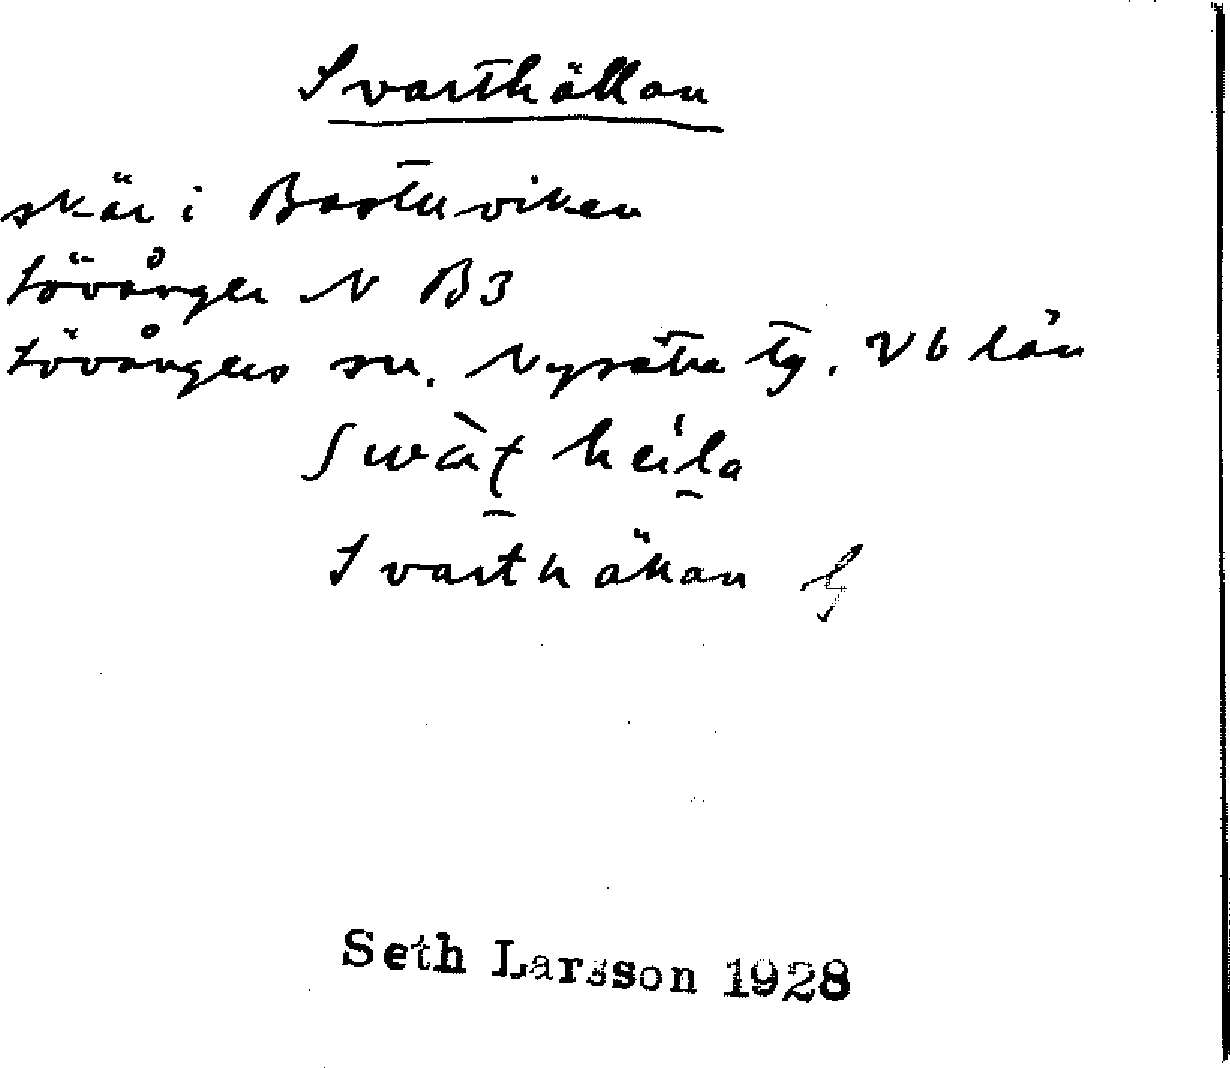 Svarthällan
skär i Bastuviken
Lövånger N B3
Lövångers sn. Nysätra tg. Vb län
Svarthällan
Seth Larsson 1928